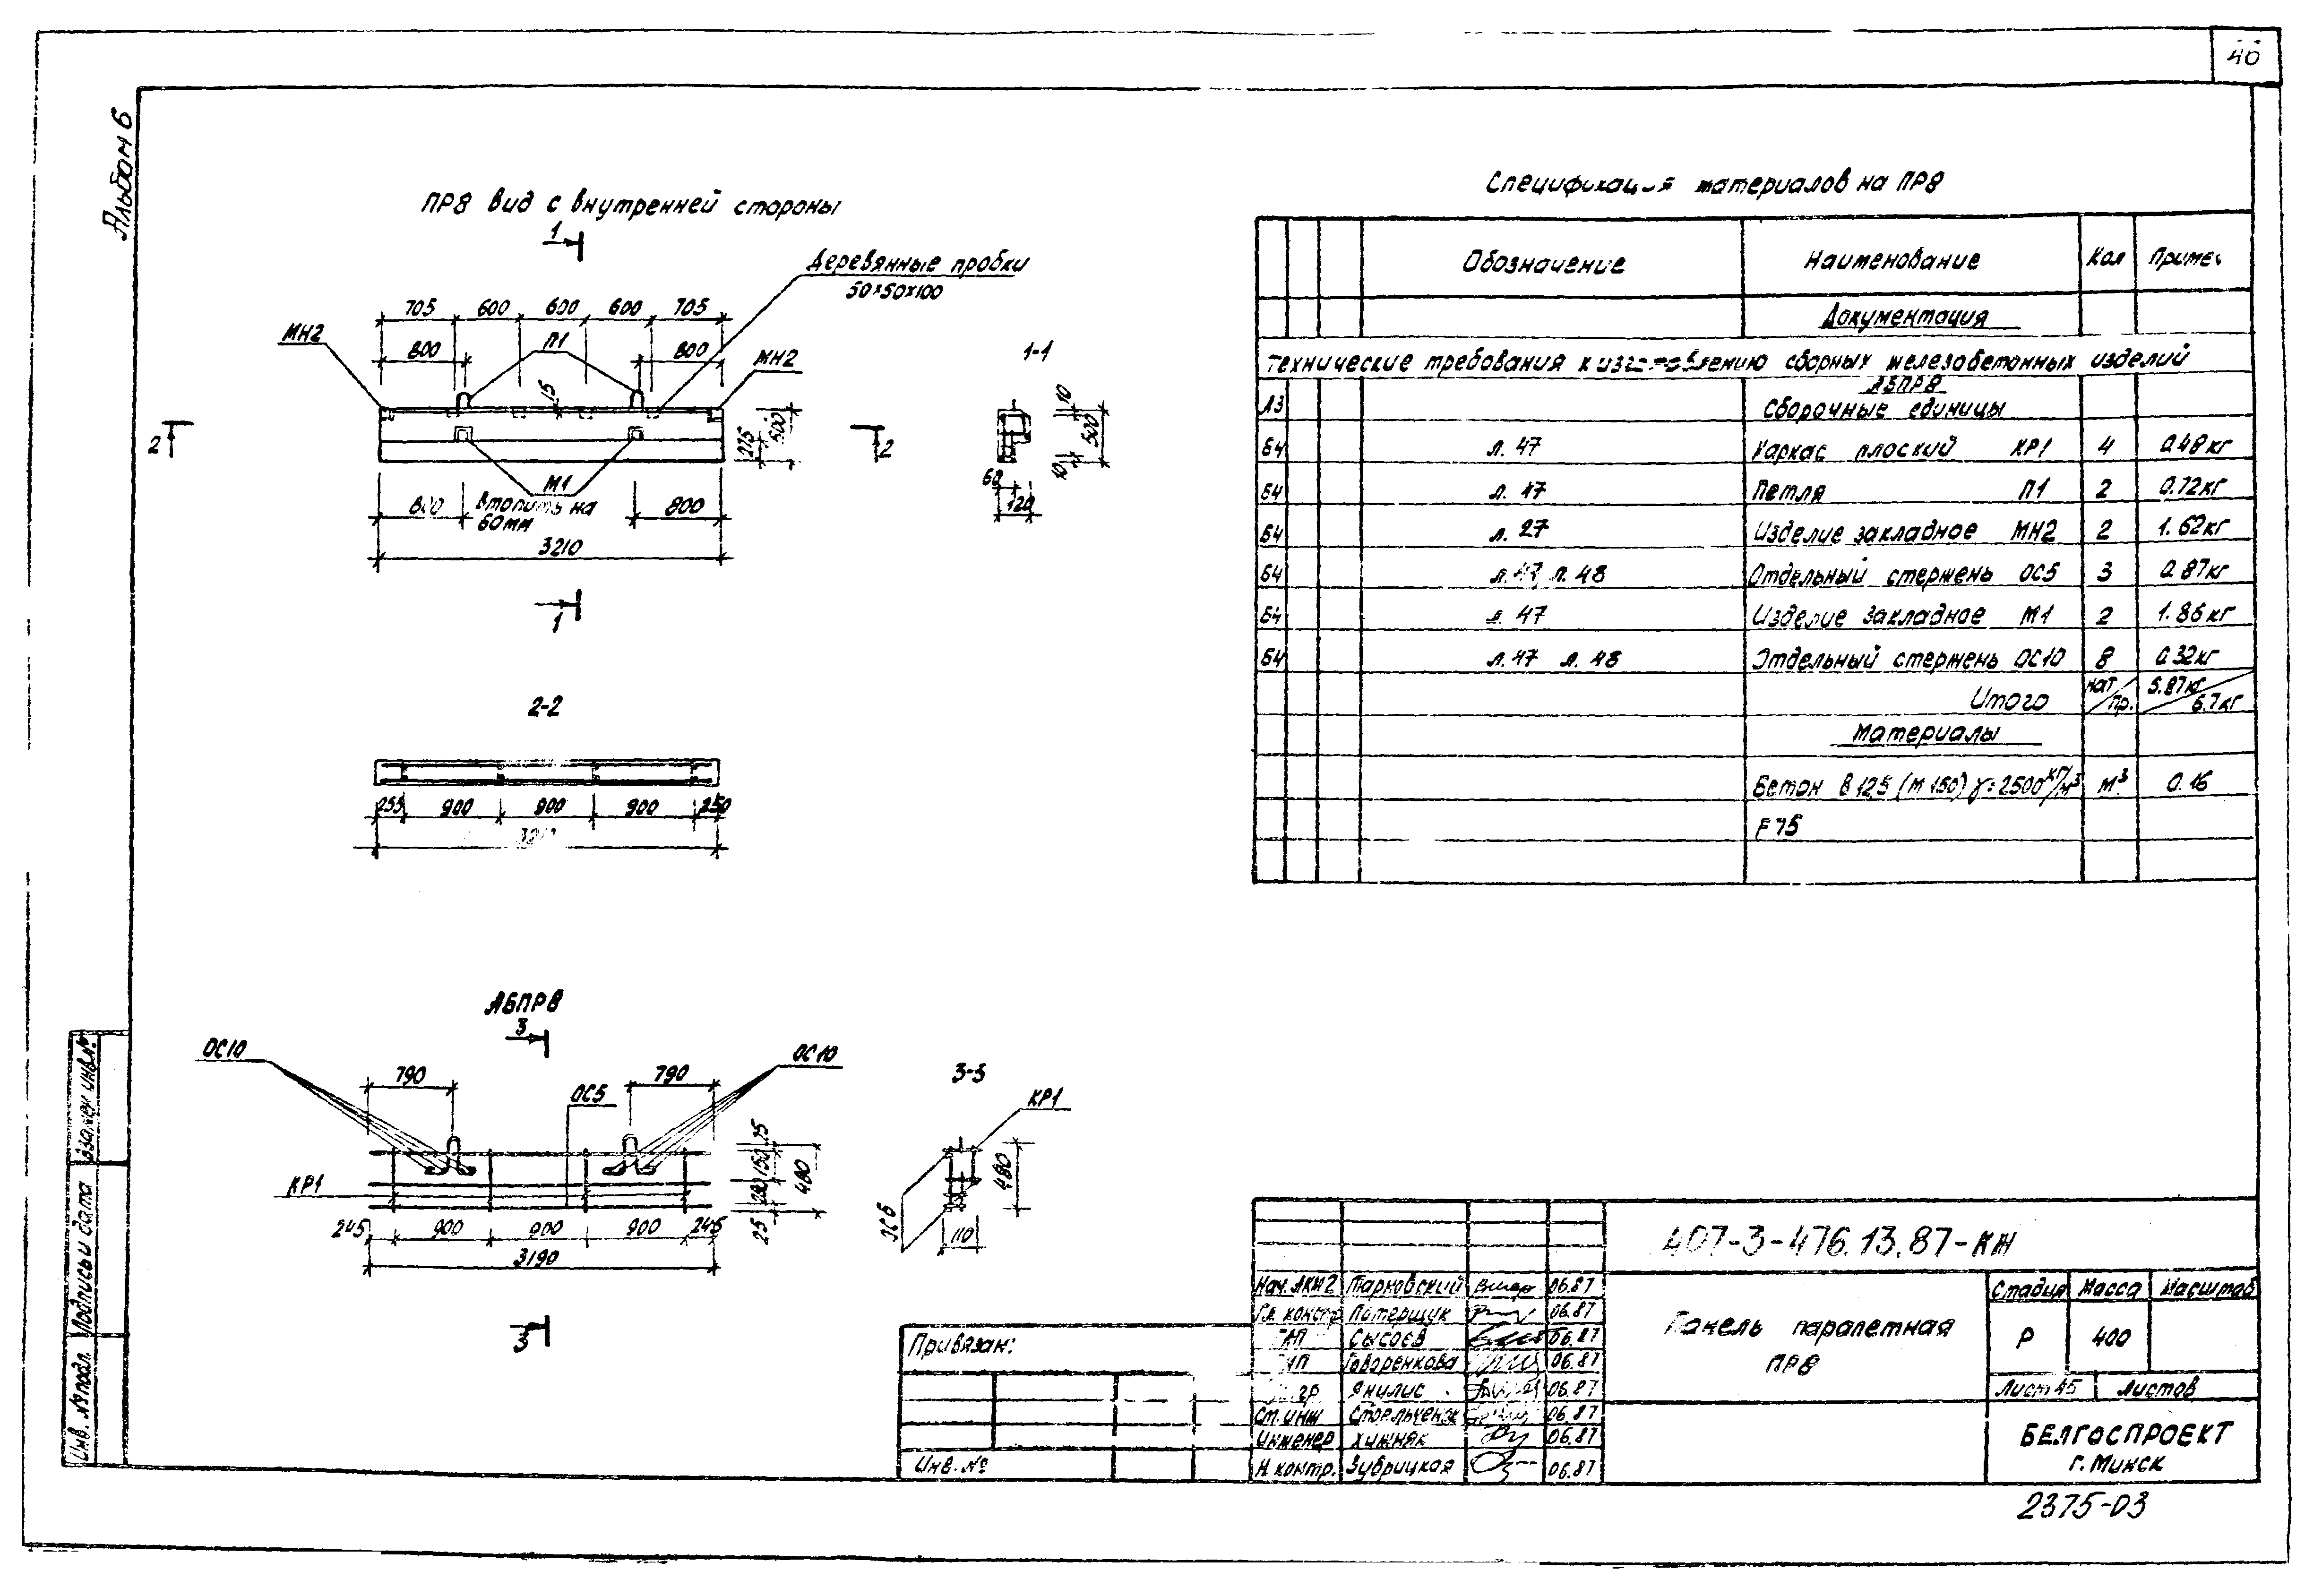 46
Альбом 6
ПР8 вид с внутренней стороны
1
Деревянные пробки
50×50×100
705 600 600 600 705
МН2
800 П1 800
МН2
15
500
275
2 2
М1
Втопить на
60мм
800
3210
1
1-1
10
500
10
60
120
2-2
255 900 900 900 250
АБПР8
3
ОС10
ОС10
790 790
ОС5
КР1
25
150
480
25
245 900 900 900 245
3190
3
3-3
КР1
480
110
Спецификация материалов на ПР8
Обозначение Наименование Кол Примеч
Документация
Технические требования к изготовлению сборных железобетонных изделий
АБПР8
А3 Сборочные единицы
Б4 л. 47 Каркас плоский КР1 4 0.48кг
Б4 л. 47 Петля П1 2 0.72кг
Б4 л. 27 Изделие закладное МН2 2 1.62кг
Б4 л. 47 л. 48 Отдельный стержень ОС5 3 0.87кг
Б4 л. 47 Изделие закладное М1 2 1.86кг
Б4 л. 47 л. 48 Отдельный стержень ОС10 8 0.32кг
Итого нат 5.87кг
пр. 6.7кг
Материалы
Бетон В 12,5 (М 150) γ=2500кг/м³ м³ 0.16
F75
407-3-476.13.87-КЖ
Нач. АКМ2 Тарновский 06.87
Гл. констр Потерщук 06.87
ГАП Сысоев 06.87
Говоренкова 06.87
Янилис 06.87
Ст. инж 06.87
Инженер Хижняк 06.87
Н. контр. Зубрицкая 06.87
Панель парапетная
ПР8
Стадия Масса Масштаб
Р 400
Лист 45 Листов
БЕЛГОСПРОЕКТ
г. Минск
Привязан:
Инв. №
Инв. № подл. Подпись и дата Взамен инв.№
2375-03